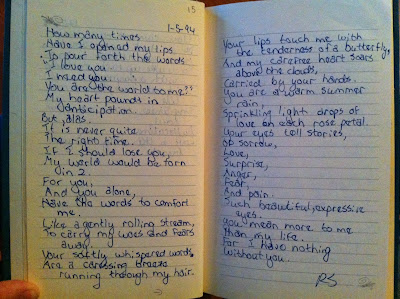 15
1-5-94
How many times
Have I opened my lips
To pour forth the words
I love you
I need you
You are the world to me?
My heart pounds in
anticipation.
But, alas
It is never quite
The right time.
If I should lose you,
My world would be torn
in 2.
For you,
And you alone,
Have the words to comfort
me.
Like a gently rolling stream,
To carry my woes and fears
away.
Your softly whispered words,
Are a caressing breeze
running through my hair.
Your lips touch me with
the tenderness of a butterfly,
And my carefree heart soars
above the clouds,
Carried by your hands.
You are a warm summer
rain,
Sprinkling light drops of
love on each rose petal.
Your eyes tell stories,
Of sorrow,
Love,
Surprise,
Anger,
Fear,
And pain.
Such beautiful, expressive
eyes.
You mean more to me
Than my life.
For I have nothing
Without you.
RS